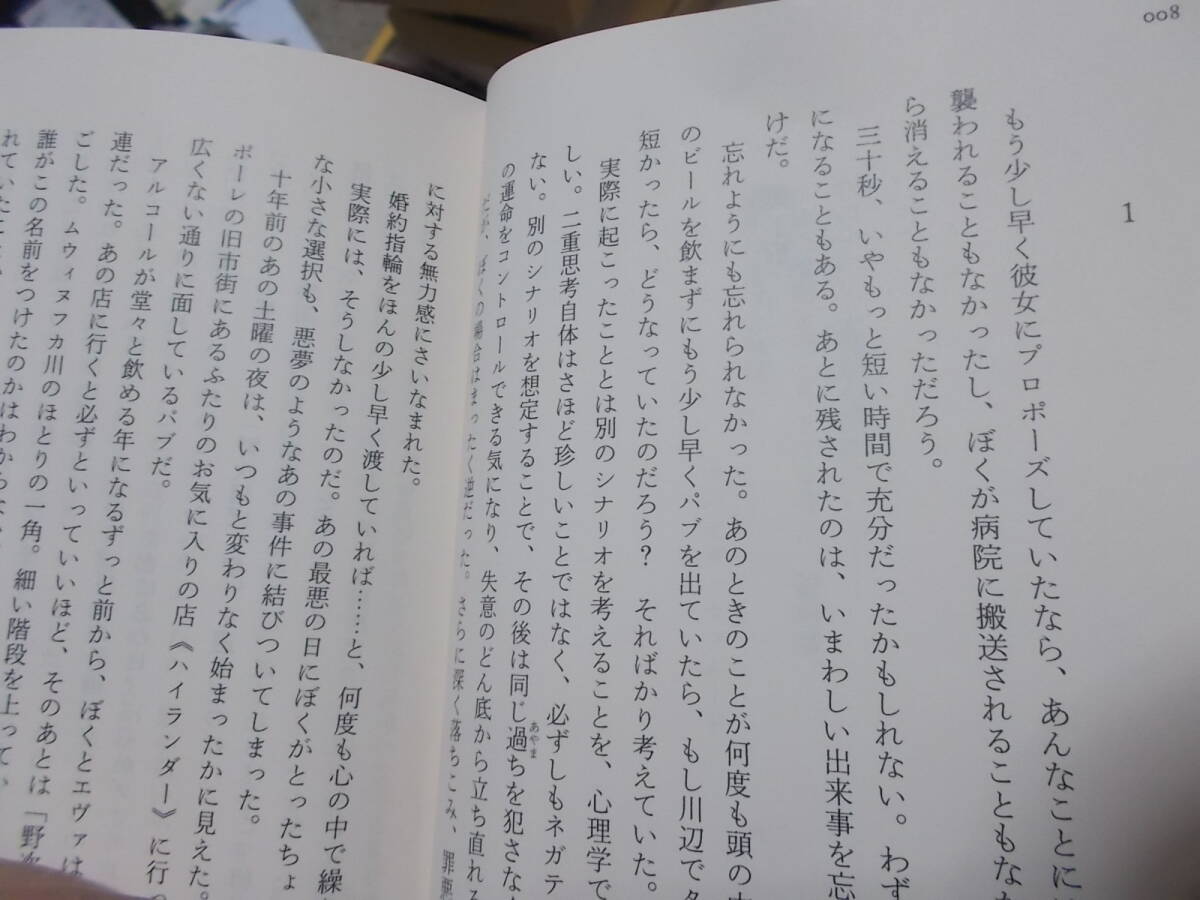 008
1
もう少し早く彼女にプロポーズしていたなら、あんなことに
襲われることもなかったし、ぼくが病院に搬送されることもな
ら消えることもなかっただろう。
三十秒、いやもっと短い時間で充分だったかもしれない。わず
になることもある。あとに残されたのは、いまわしい出来事を忘
けだ。
忘れようにも忘れられなかった。あのときのことが何度も頭の
のビールを飲まずにもう少し早くパブを出ていたら、もし川辺で
短かったら、どうなっていたのだろう？　そればかり考えていた。
実際に起こったこととは別のシナリオを考えることを、心理学で
しい。二重思考自体はさほど珍しいことではなく、必ずしもネガテ
ない。別のシナリオを想定することで、その後は同じ過ちを犯さな
あやま
の運命をコントロールできる気になり、失意のどん底から立ち直れる
ぼくの場合はまったく逆だった。さらに深く落ちこみ、罪悪
に対する無力感にさいなまれた。
婚約指輪をほんの少し早く渡していれば……と、何度も心の中で繰
実際には、そうしなかったのだ。あの最悪の日にぼくがとったちょ
な小さな選択も、悪夢のようなあの事件に結びついてしまった。
十年前のあの土曜の夜は、いつもと変わりなく始まったかに見えた。
ポーレの旧市街にあるふたりのお気に入りの店《ハイランダー》に行
広くない通りに面しているパブだ。
アルコールが堂々と飲める年になるずっと前から、ぼくとエヴァは
連だった。あの店に行くと必ずといっていいほど、そのあとは「野次
ごした。ムウィヌフカ川のほとりの一角。細い階段を上ってい
誰がこの名前をつけたのかはわからな
れていた